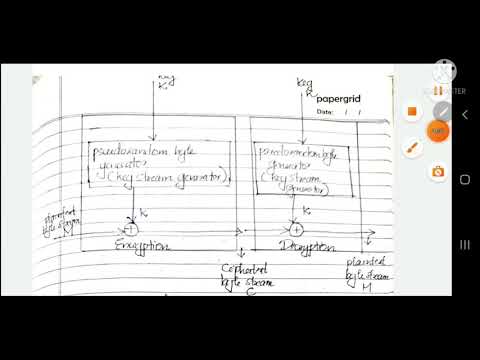 Key
K
Key
K
papergrid
Date: / /
pseudorandom byte
generator
(key stream generator)
pseudorandom byte
generator
(key stream
generator)
K
K
+
+
byte stream
Encryption
Decryption
byte stream
C
plaintext
byte stream
M